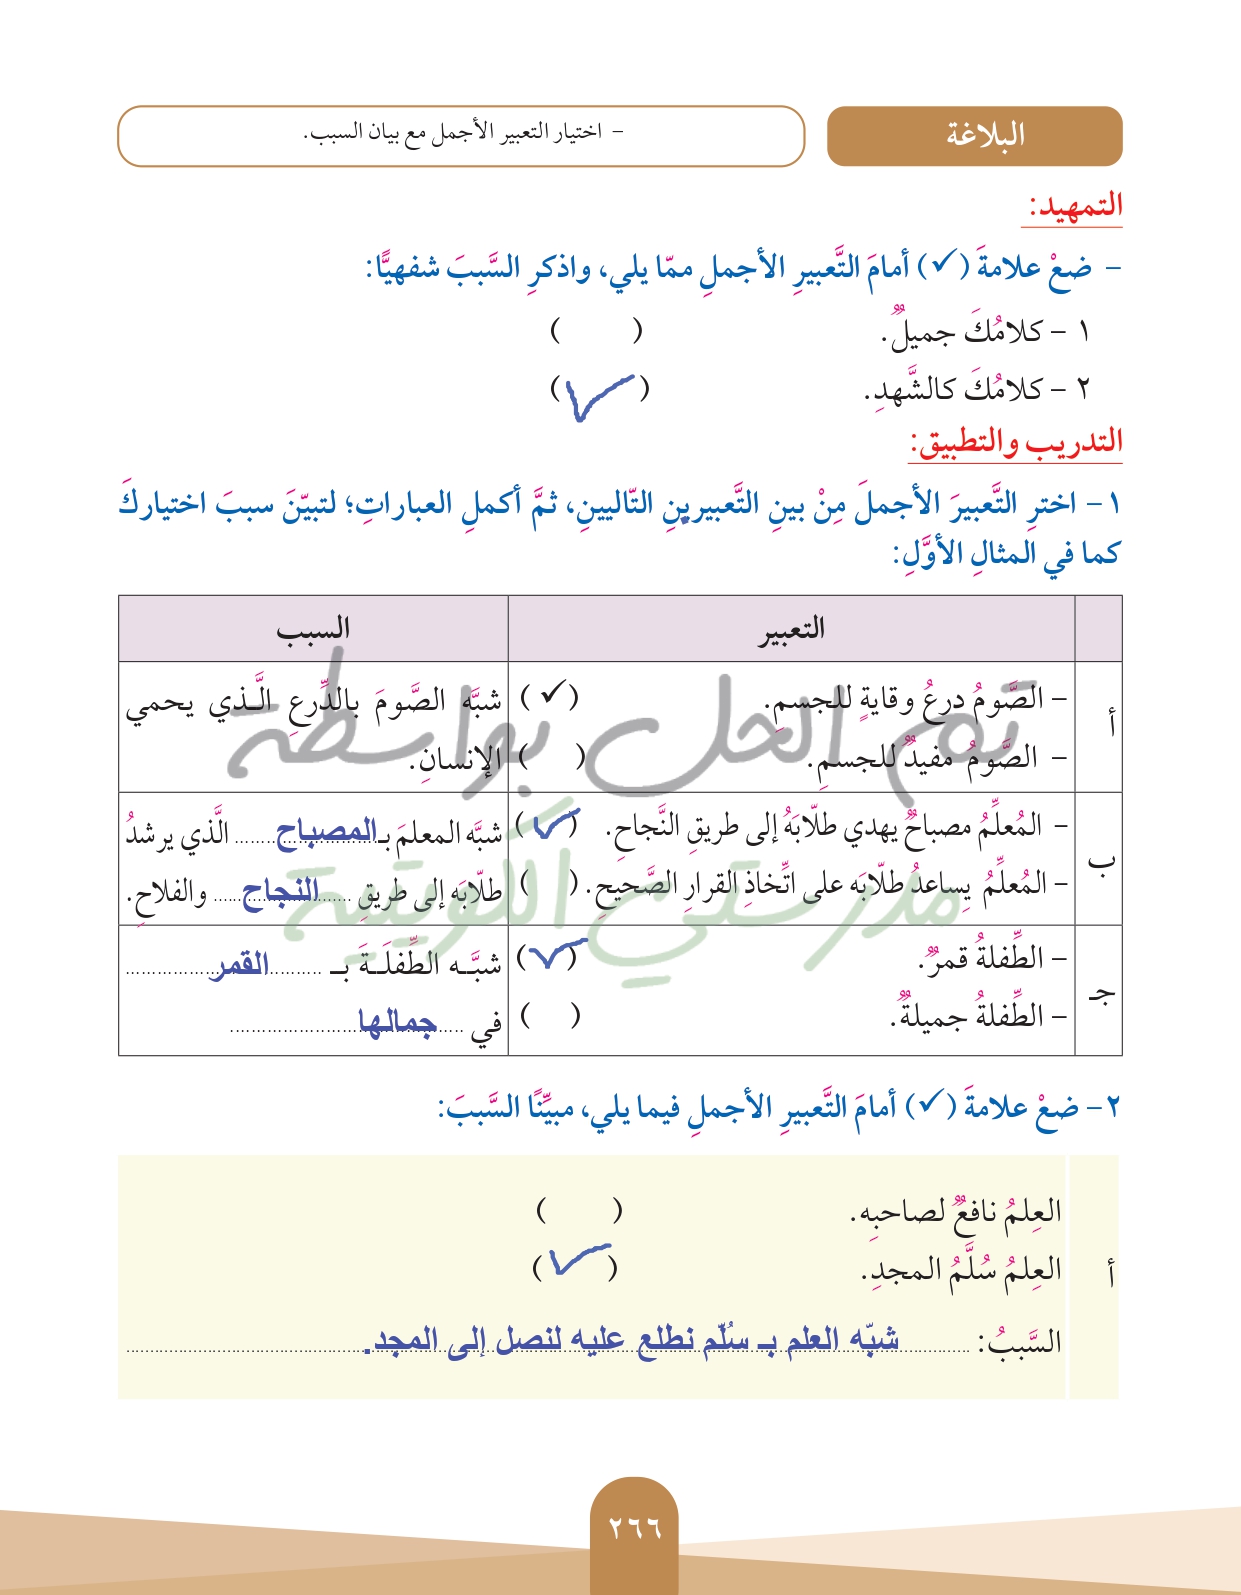 البلاغة
- اختيار التعبير الأجمل مع بيان السبب.
التمهيد:
- ضعْ علامةَ (✓) أمامَ التَّعبيرِ الأجملِ ممّا يلي، واذكرِ السَّببَ شفهيًّا:
١ - كلامُكَ جميلٌ. ( )
٢ - كلامُكَ كالشَّهدِ. (✓)
التدريب والتطبيق:
١- اخترِ التَّعبيرَ الأجملَ مِنْ بينِ التَّعبيرينِ التّاليينِ، ثمَّ أكملِ العباراتِ؛ لتبيّنَ سببَ اختياركَ
كما في المثالِ الأوَّلِ:
التعبير
السبب
أ
- الصَّومُ درعُ وقايةٍ للجسمِ. (✓)
- الصَّومُ مفيدٌ للجسمِ. ( )
شبَّه الصَّومَ بالدِّرعِ الَّـذي يحمي
الإنسانِ.
ب
- المُعلِّمُ مصباحٌ يهدي طلّابَهُ إلى طريقِ النَّجاحِ. (✓)
- المُعلِّمُ يساعدُ طلّابَه على اتِّخاذِ القرارِ الصَّحيحِ. ( )
شبَّه المعلمَ بـ المصباح الَّذي يرشدُ
طلّابَه إلى طريقِ النجاح والفلاحِ.
جـ
- الطِّفلةُ قمرٌ. (✓)
- الطِّفلةُ جميلةٌ. ( )
شبَّــه الطِّفلَــةَ بــ القمر
في جمالها
تم الحل بواسطة
مدرستي الكويتية
٢- ضعْ علامةَ (✓) أمامَ التَّعبيرِ الأجملِ فيما يلي، مبيِّنًا السَّببَ:
أ
العِلمُ نافعٌ لصاحبِه. ( )
العِلمُ سُلَّمُ المجدِ. (✓)
السَّببُ: شبّه العلم بـ سُلّم نطلع عليه لنصل إلى المجد.
٢٦٦